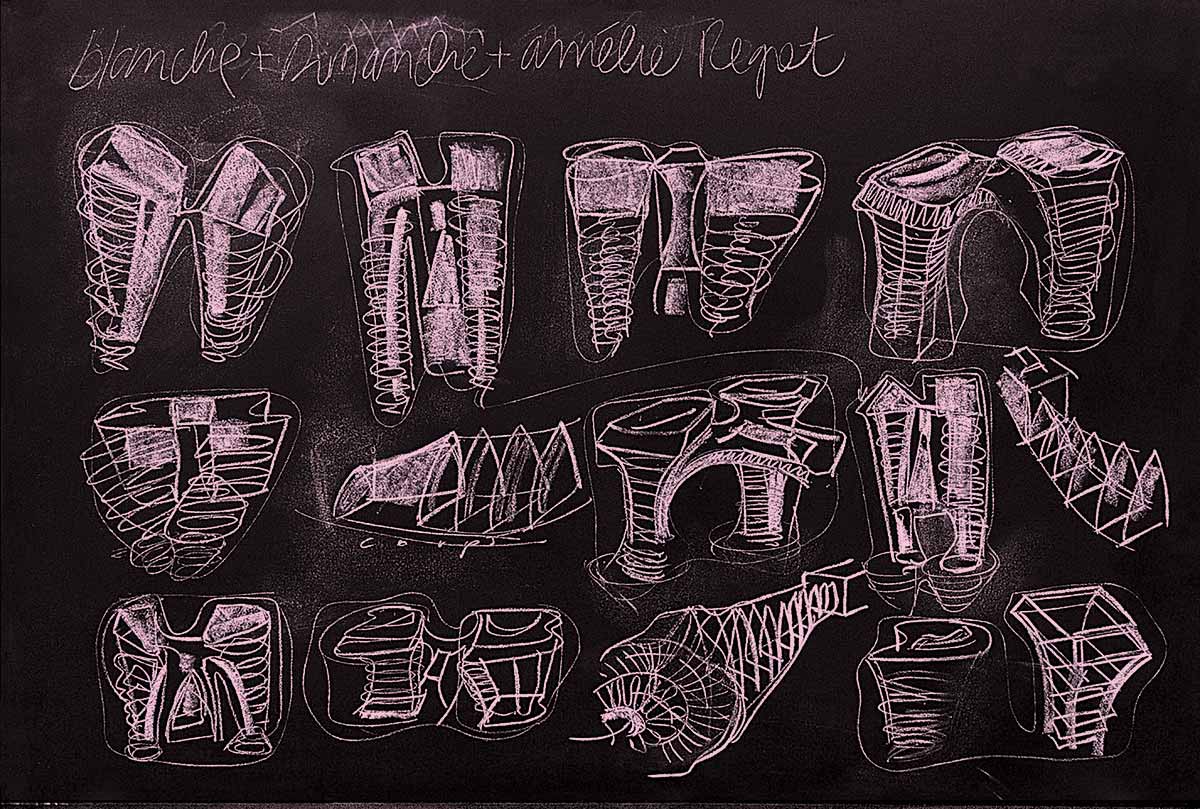 blanche + Dimanche + amélie Regot
corps